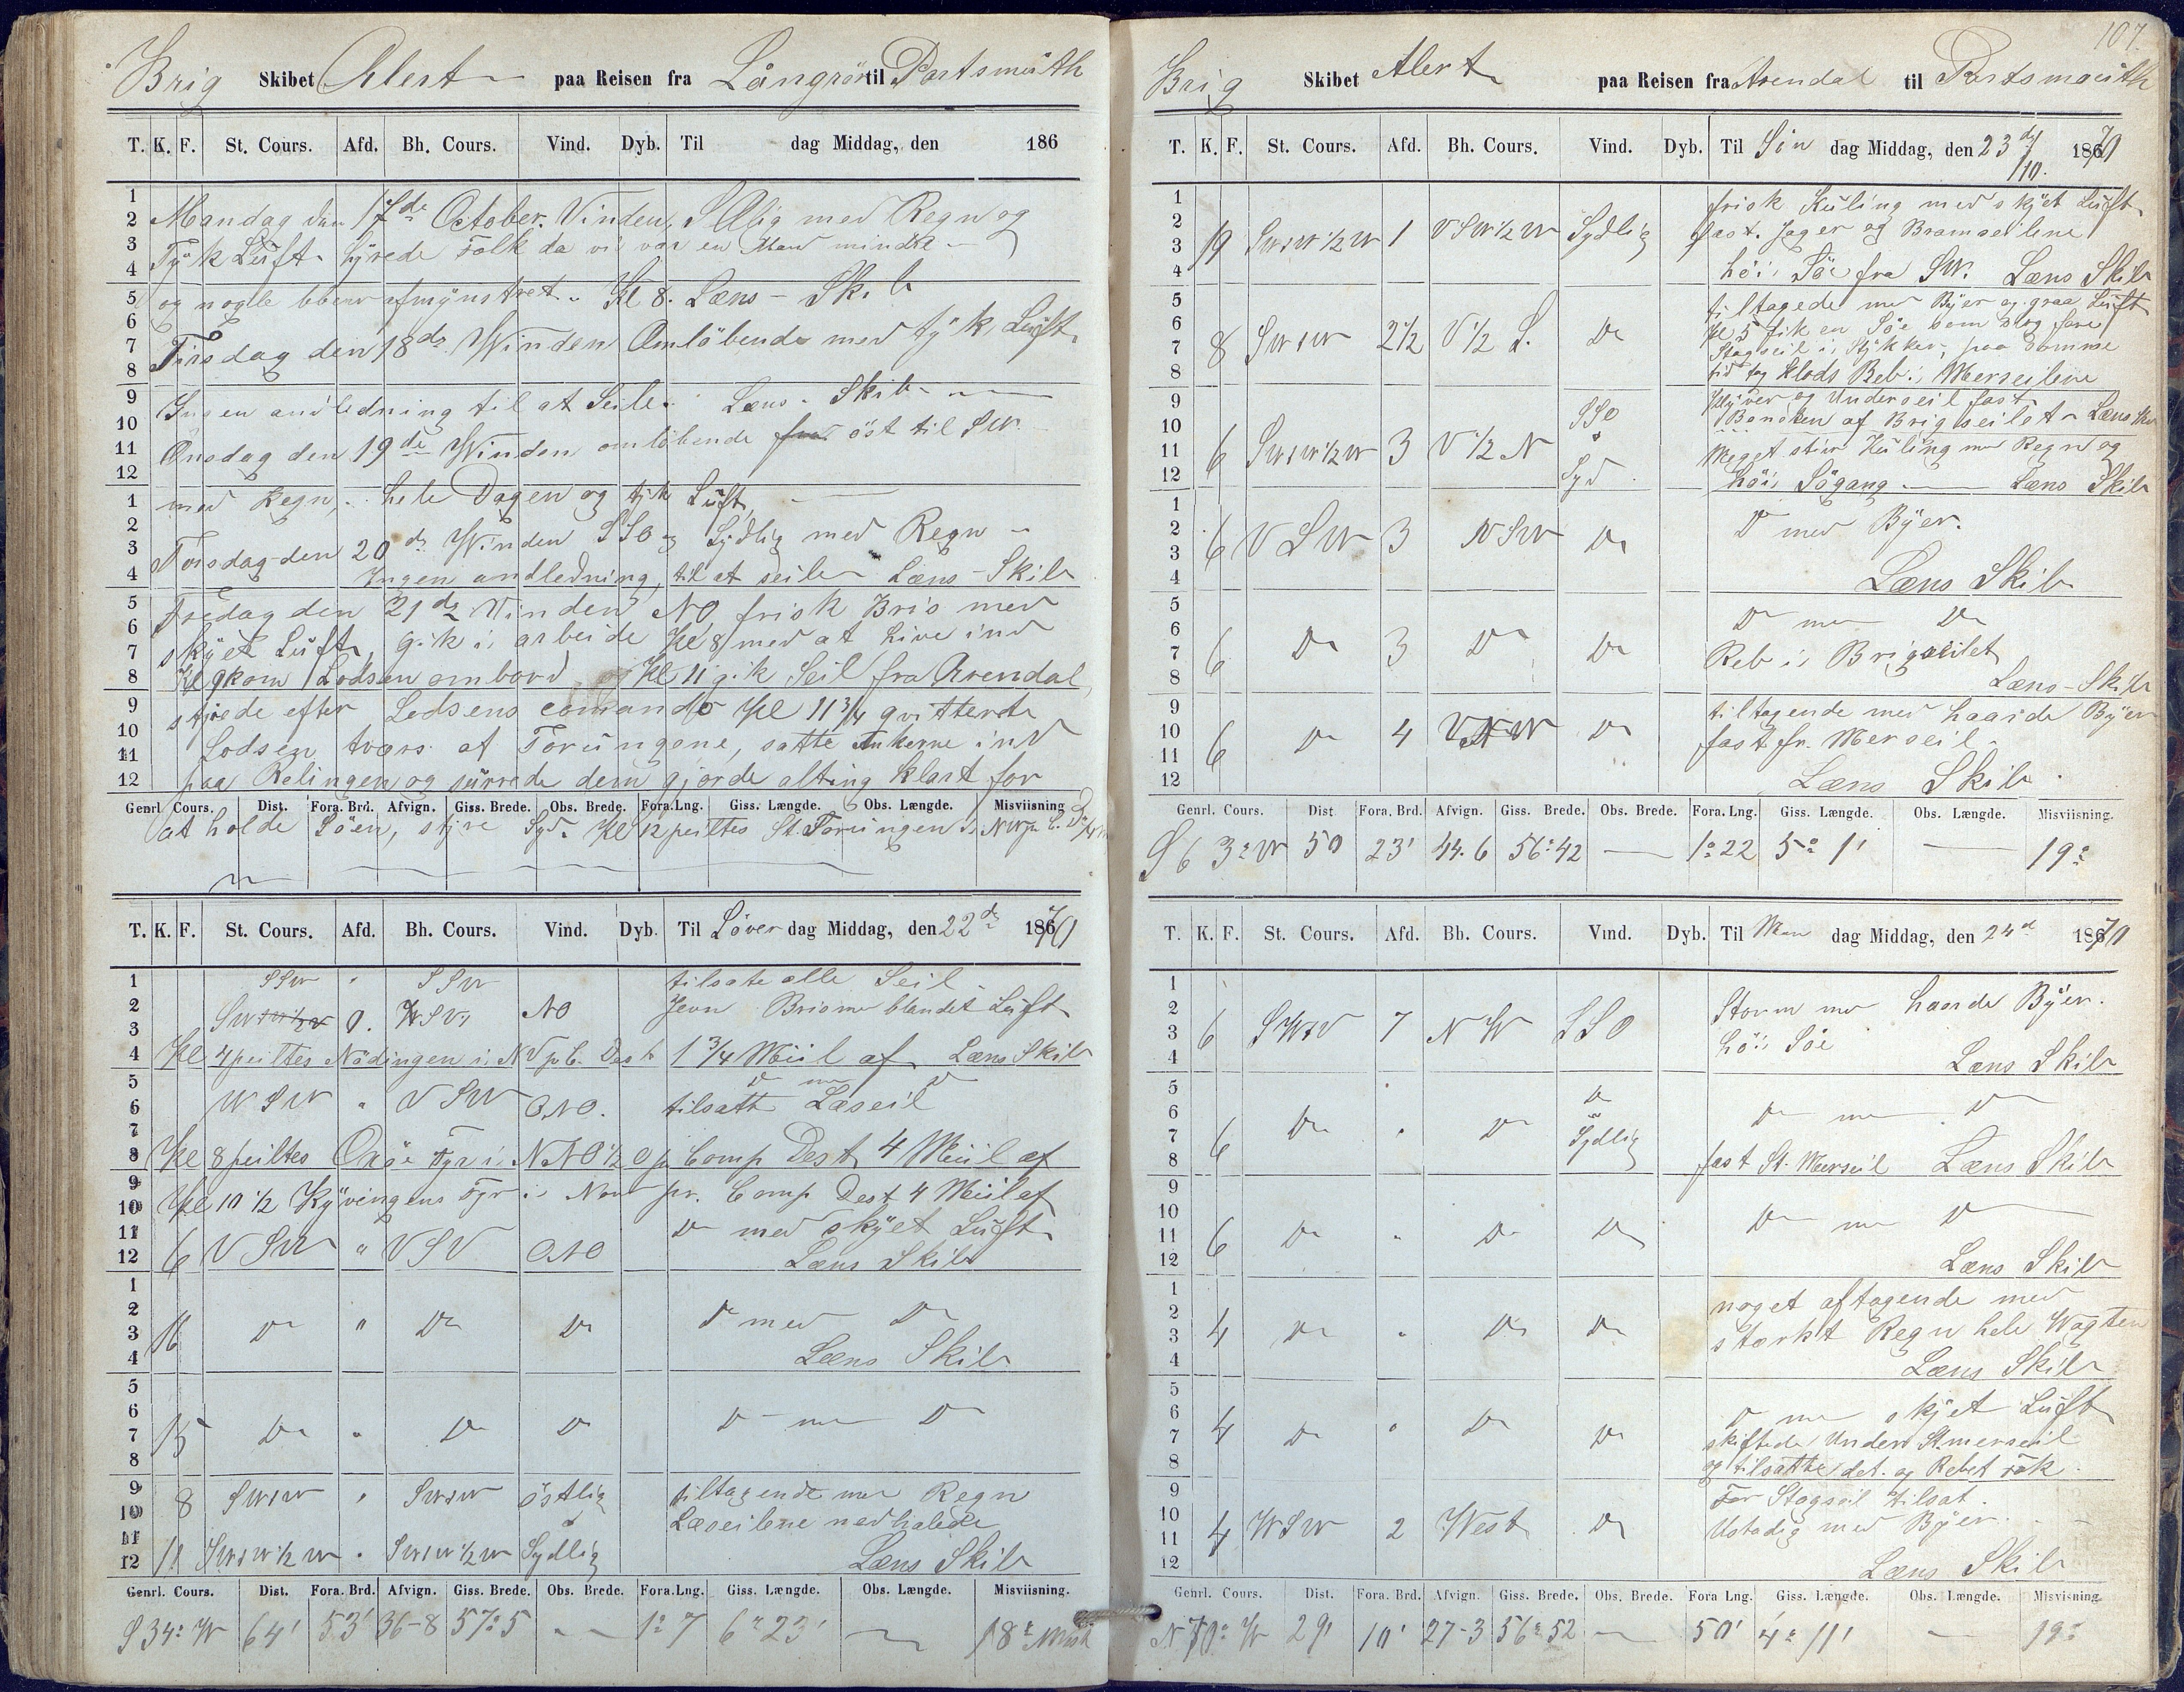 Brig Skibet Alert paa Reisen fra Långrör til Portsmuth
T. K. F. St. Cours. Afd. Bh. Cours. Vind. Dyb. Til dag Middag, den 186
Mandag den 17de October. Vinden, S Ølig med Regn og
Tyk Luft. hyrede Folk da vi var en Man mindre
og nogle blev afmynstret. Kl 8. Læns - Skib
Tirsdag den 18de Winden Omløbende med tyk Luft.
Ingen andledning til at Seile. Læns. Skib
Onsdag den 19de Winden omløbende öst til SW.
med Regn, hele Dagen og tyk Luft,
Torsdag den 20de Winden SSO og Sydlig med Regn
Ingen andledning til at seile Læns - Skib
Fredag den 21de Vinden NO frisk Bris med
skyet Luft, gik i arbeide Kl 8 med at hive ind
Kl 9 kom Lodsen ombord og Kl 11 gik Seil fra Arendal,
styrede efter Lodsens comando Kl 11 3/4 qvitterede
Lodsen tvars af Torungene, satte Ankerne ind
paa Relingen og surrede dem gjorde alting klart for
Genrl. Cours. Dist. Fora. Brd. Afvign. Giss. Brede. Obs. Brede. Fora.Lng. Giss. Længde. Obs. Længde. Misviisning
at holde Söen, styre Syd. Kl 12 peiltes St. Torungen i NW p. C.
T. K. F. St. Cours. Afd. Bh. Cours. Vind. Dyb. Til Löver dag Middag, den 22de 1870
SSW " SSW tilsate alle Seil
SW 0. WSV NO Jevn Bris me blandet Luft
Kl 4 peiltes Nödingen i NV p. C. Dest 1 3/4 Miil af Læns Skib
Do me Do
WSW " VSW ONO. tilsatte Læseil
Kl 8 peiltes Oxöe Fyr i NNO 1/2 O p Comp Dest 4 Miil af
Kl 10 1/2 Ryvingens Fyr i Nor pr. Comp Dest 4 Miil af
Do med skyet Luft
6 VSW " VSV ONO Læns Skib
16 Do " Do Do Do med Do
Læns Skib
15 Do " Do Do Do me Do
8 SWtW " SWtW östlig tiltagende me Regn
Læseilene nedhalede
11 SWtW 1/2 W " SWtW 1/2 W Sydlig Læns Skib
Genrl. Cours. Dist. Fora. Brd. Afvign. Giss. Brede. Obs. Brede. Fora.Lng. Giss. Længde. Obs. Længde. Misviisning.
S 34° W 64' 53' 36-8 57°5 1°7 6°23' 18°
107.
Brig Skibet Alert paa Reisen fra Arendal til Portsmouth
T. K. F. St. Cours. Afd. Bh. Cours. Vind. Dyb. Til Sön dag Middag, den 23d/10. 1870
frisk Kuling med skyet Luft
19 SWtW 1/2 W 1 VSW 1/2 W Sydlig fast. Jager og Bramseilene
höi Söe fra SW. Læns Skib
tiltagede me Byer og graa Luft
Kl 5 fik en Söe som slog fore
8 SWtW 2 1/2 V 1/2 S. Do Stagseil i Stykker, paa somme
tid tog Klods Reb i Merseilene
Klyver og Underseil fast
SSO Bonsken af Brigseilet Læns Skib
6 SWtW 1/2 W 3 V 1/2 N Meget stiv Kuling me Regn og
Syd höi Sögang Læns Skib
6 VSW 3 VSW Do Do med Byer.
Læns Skib
Do me Do
6 Do 3 Do Do Reb i Brigseilet
Læns - Skib
tiltagende med haarde Byer
6 Do 4 Do fast fr. Merseil
Læns Skib
Genrl. Cours. Dist Fora. Brd. Afvign. Giss. Brede. Obs. Brede. Fora. Lng. Giss. Længde. Obs. Længde. Misviisning.
S 63° W 50 23' 44.6 56°42 1°22 5°1' 19°
T. K. F. St. Cours. Afd. Bh. Cours. Vind. Dyb. Til Man dag Middag, den 24d 1870
Storm me haarde Byer.
6 SWtV 7 NW SSO höi Söe
Læns Skib
Do Do me Do
6 Do " Do Sydlig
fast St. Merseil Læns Skib
6 Do " Do Do Do me Do
Læns Skib
noget aftagende med
4 Do " Do Do stærkt Regn hele Wagten
Læns Skib
Do me skyet Luft
4 Do " Do Do skiftede Under St. merseil
og tilsatte det. og Rebet
For Stagseil tilsat.
4 WSW 2 West Do Ustadig med Byer.
Læns Skib
Genrl. Cours. Dist. Fora. Brd. Afvign. Giss. Brede. Obs. Brede. Fora Lng. Giss. Længde. Obs. Længde. Misvisning.
N 70° W 29 10' 27-3 56°52 50' 4°11' 19°